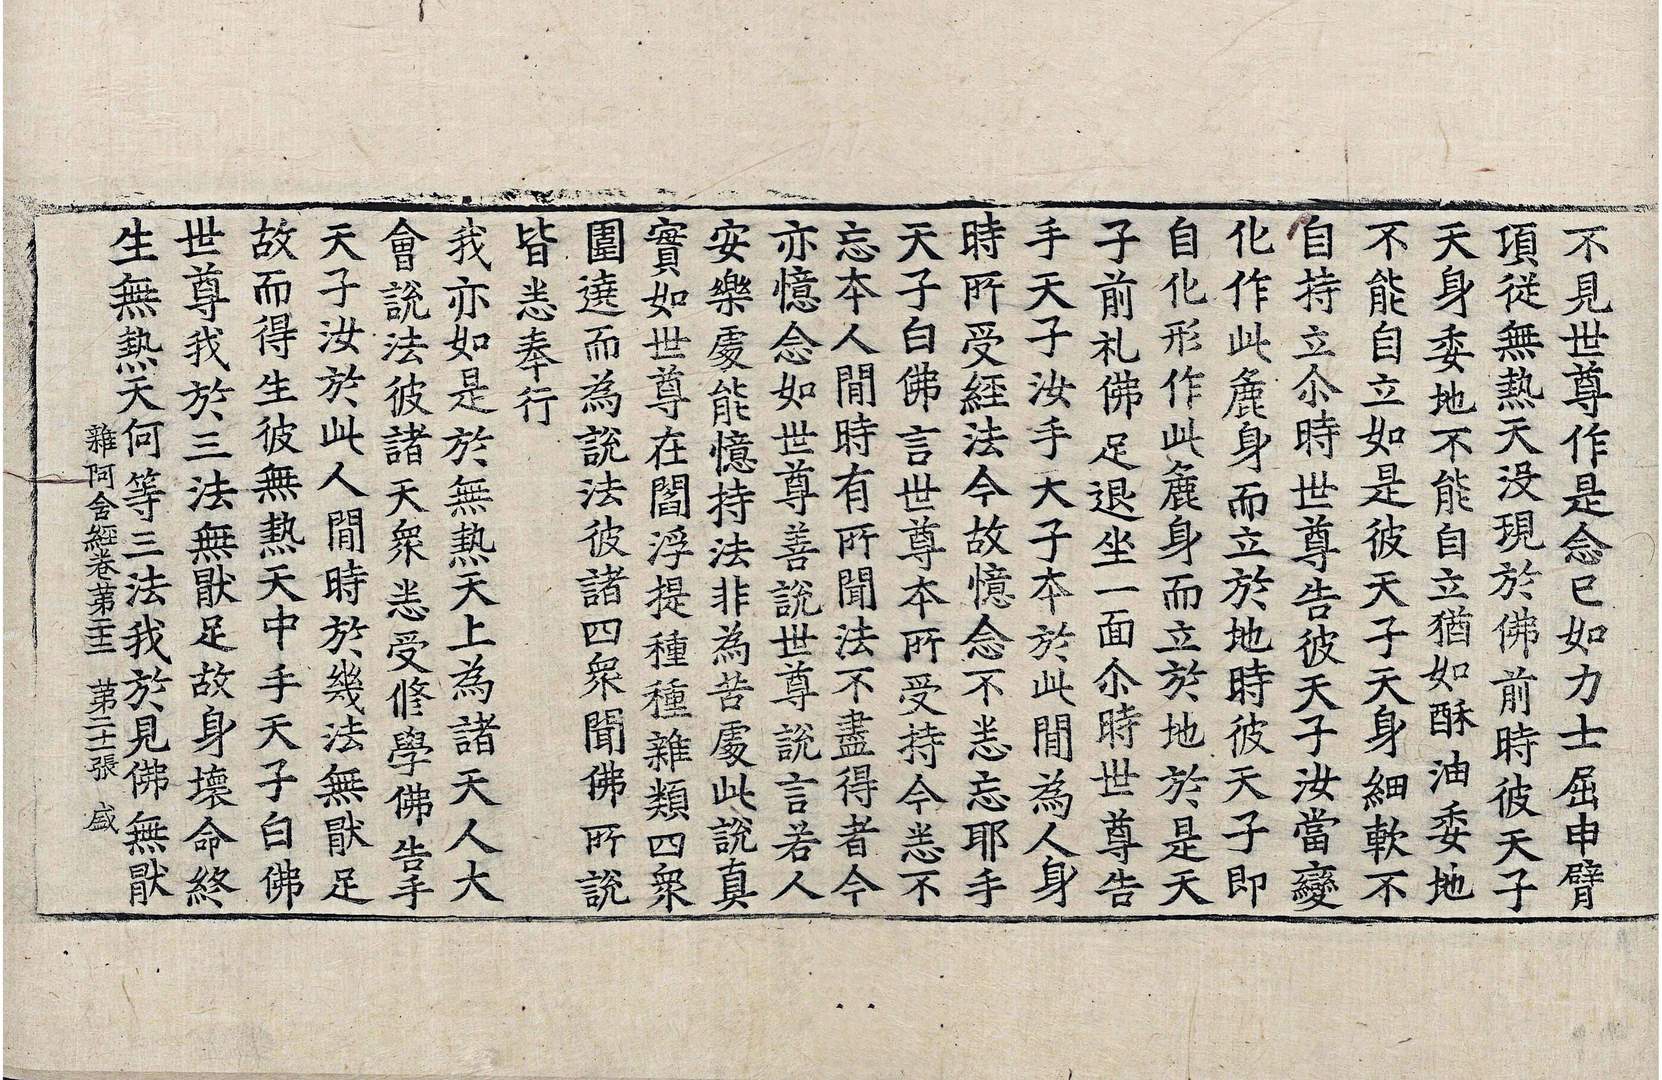 不見世尊作是念已如力士屈申臂
項從無熱天沒現於佛前時彼天子
天身委地不能自立猶如酥油委地
不能自立如是彼天子天身細軟不
自持立尒時世尊告彼天子汝當變
化作此麁身而立於地時彼天子即
自化形作此麁身而立於地於是天
子前礼佛足退坐一面尒時世尊告
手天子汝手大子本於此閒為人身
時所受經法今故憶念不悉忘耶手
天子白佛言世尊本所受持今悉不
忘本人閒時有所聞法不盡得者今
亦憶念如世尊善說世尊說言若人
安樂處能憶持法非為苦處此說真
實如世尊在閻浮提種種雜類四眾
圍遶而為說法彼諸四眾聞佛所說
皆悉奉行
我亦如是於無熱天上為諸天人大
會說法彼諸天眾悉受修學佛告手
天子汝於此人閒時於幾法無猒足
故而得生彼無熱天中手天子白佛
世尊我於三法無猒足故身壞命終
生無熱天何等三法我於見佛無猒
雜阿含經卷苐二十二 第二十一張 盛